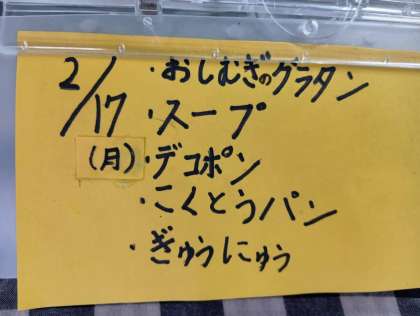 2/17
(月)
・おしむぎのグラタン
・スープ
・デコポン
・こくとうパン
・ぎゅうにゅう